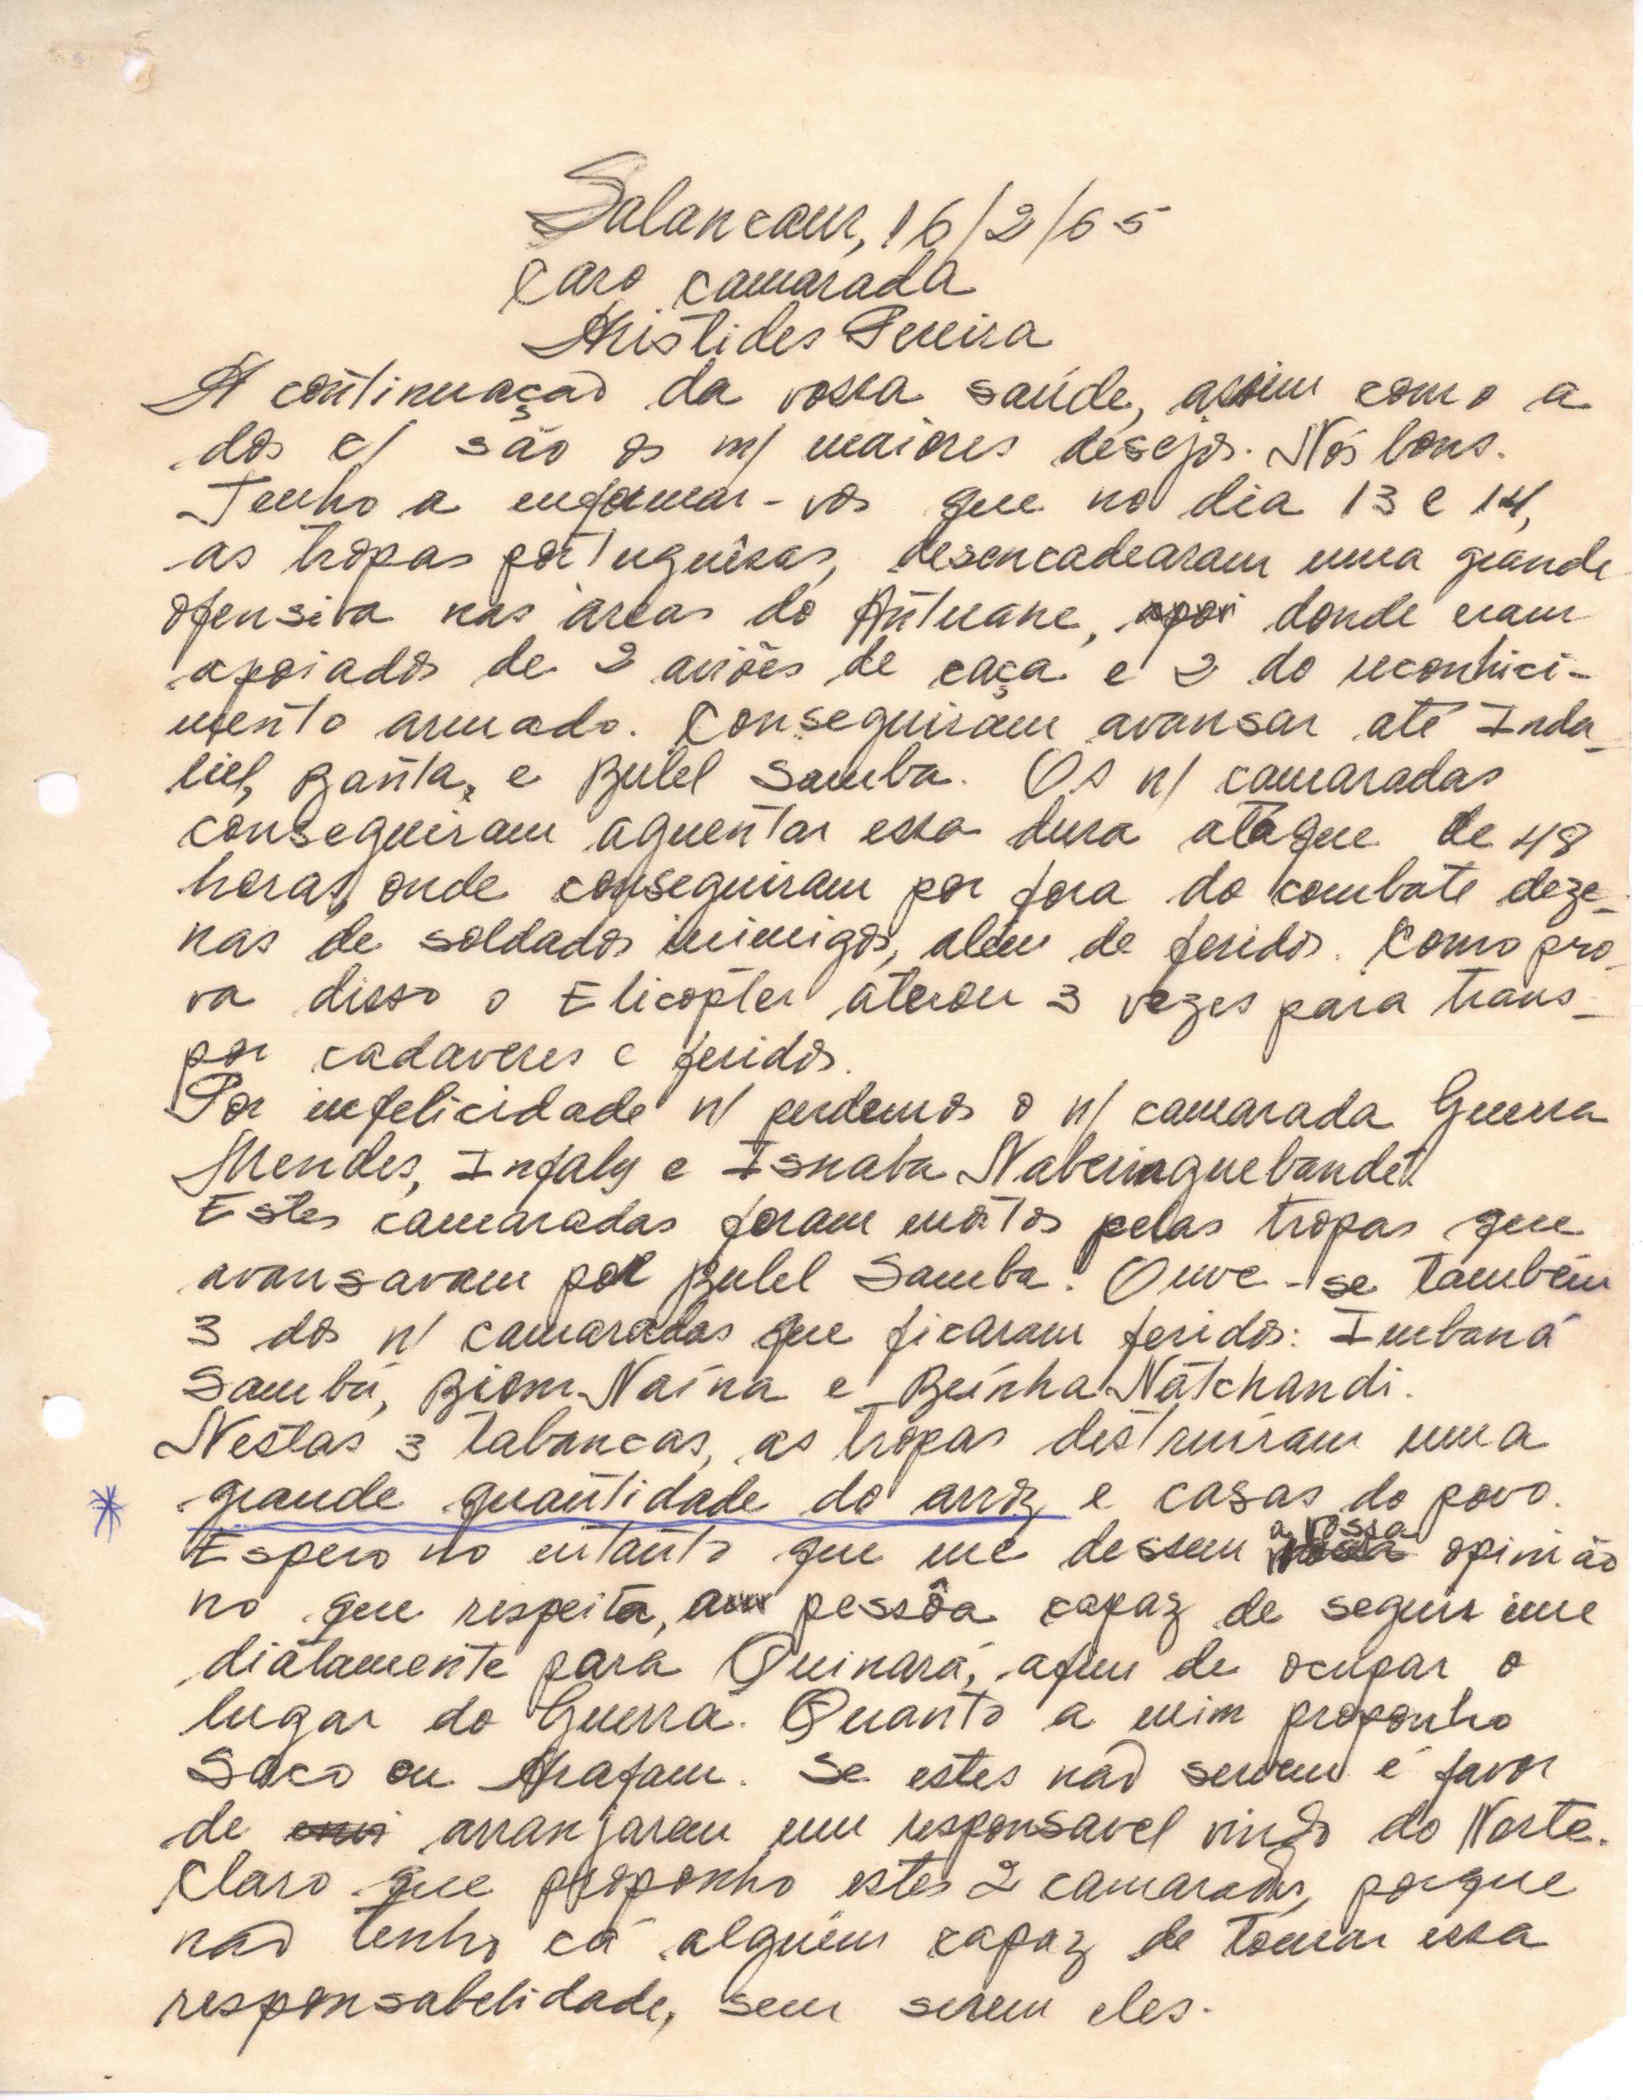 Salancaur, 16/2/65
Caro camarada
Aristides Pereira
A continuação da vossa saúde, assim como a
dos c/ são os m/ maiores desejos. Nós bons.
Tenho a enformar-vos que no dia 13 e 14,
as tropas portuguêsas, desencadearam uma grande
ofensiva nas áreas do Antuane, donde eram
apoiados de 2 aviões de caça e 2 do reconhici-
mento armado. Conseguiram avansar até Inda-
liel, Banta, e Bulel Samba. Os n/ camaradas
conseguiram aguentar essa dura ataque de 48
horas, onde conseguiram por fora do combate deze-
nas de soldados inimigos, além de feridos. Como pro-
va disso o Elicopter aterou 3 vezes para trans-
por cadaveres e feridos.
Por infelicidade n/ perdemos o n/ camarada Guerra
Mendes, Infaly e Isnaba
Estes camaradas foram mortos pelas tropas que
avansavam por Bulel Samba. Ouve-se também
3 dos n/ camaradas que ficaram feridos: Imbaná
Sambú, Biom Naína e Beínha Natchandi.
Nestas 3 tabancas, as tropas distruíram uma
grande quantidade do arroz e casas do povo.
Espero no entanto que me dessem a vossa opinião
no que respeita, a pessôa capaz de seguir ime
diatamente para Quinará, afim de ocupar o
lugar do Guerra. Quanto a mim proponho
Saco ou Arafam. Se estes não servem é favor
de arranjarem um responsavel vindo do Norte.
Claro que proponho estes 2 camaradas, porque
não tenho cá alguém capaz de tomar essa
responsabelidade, sem serem eles.